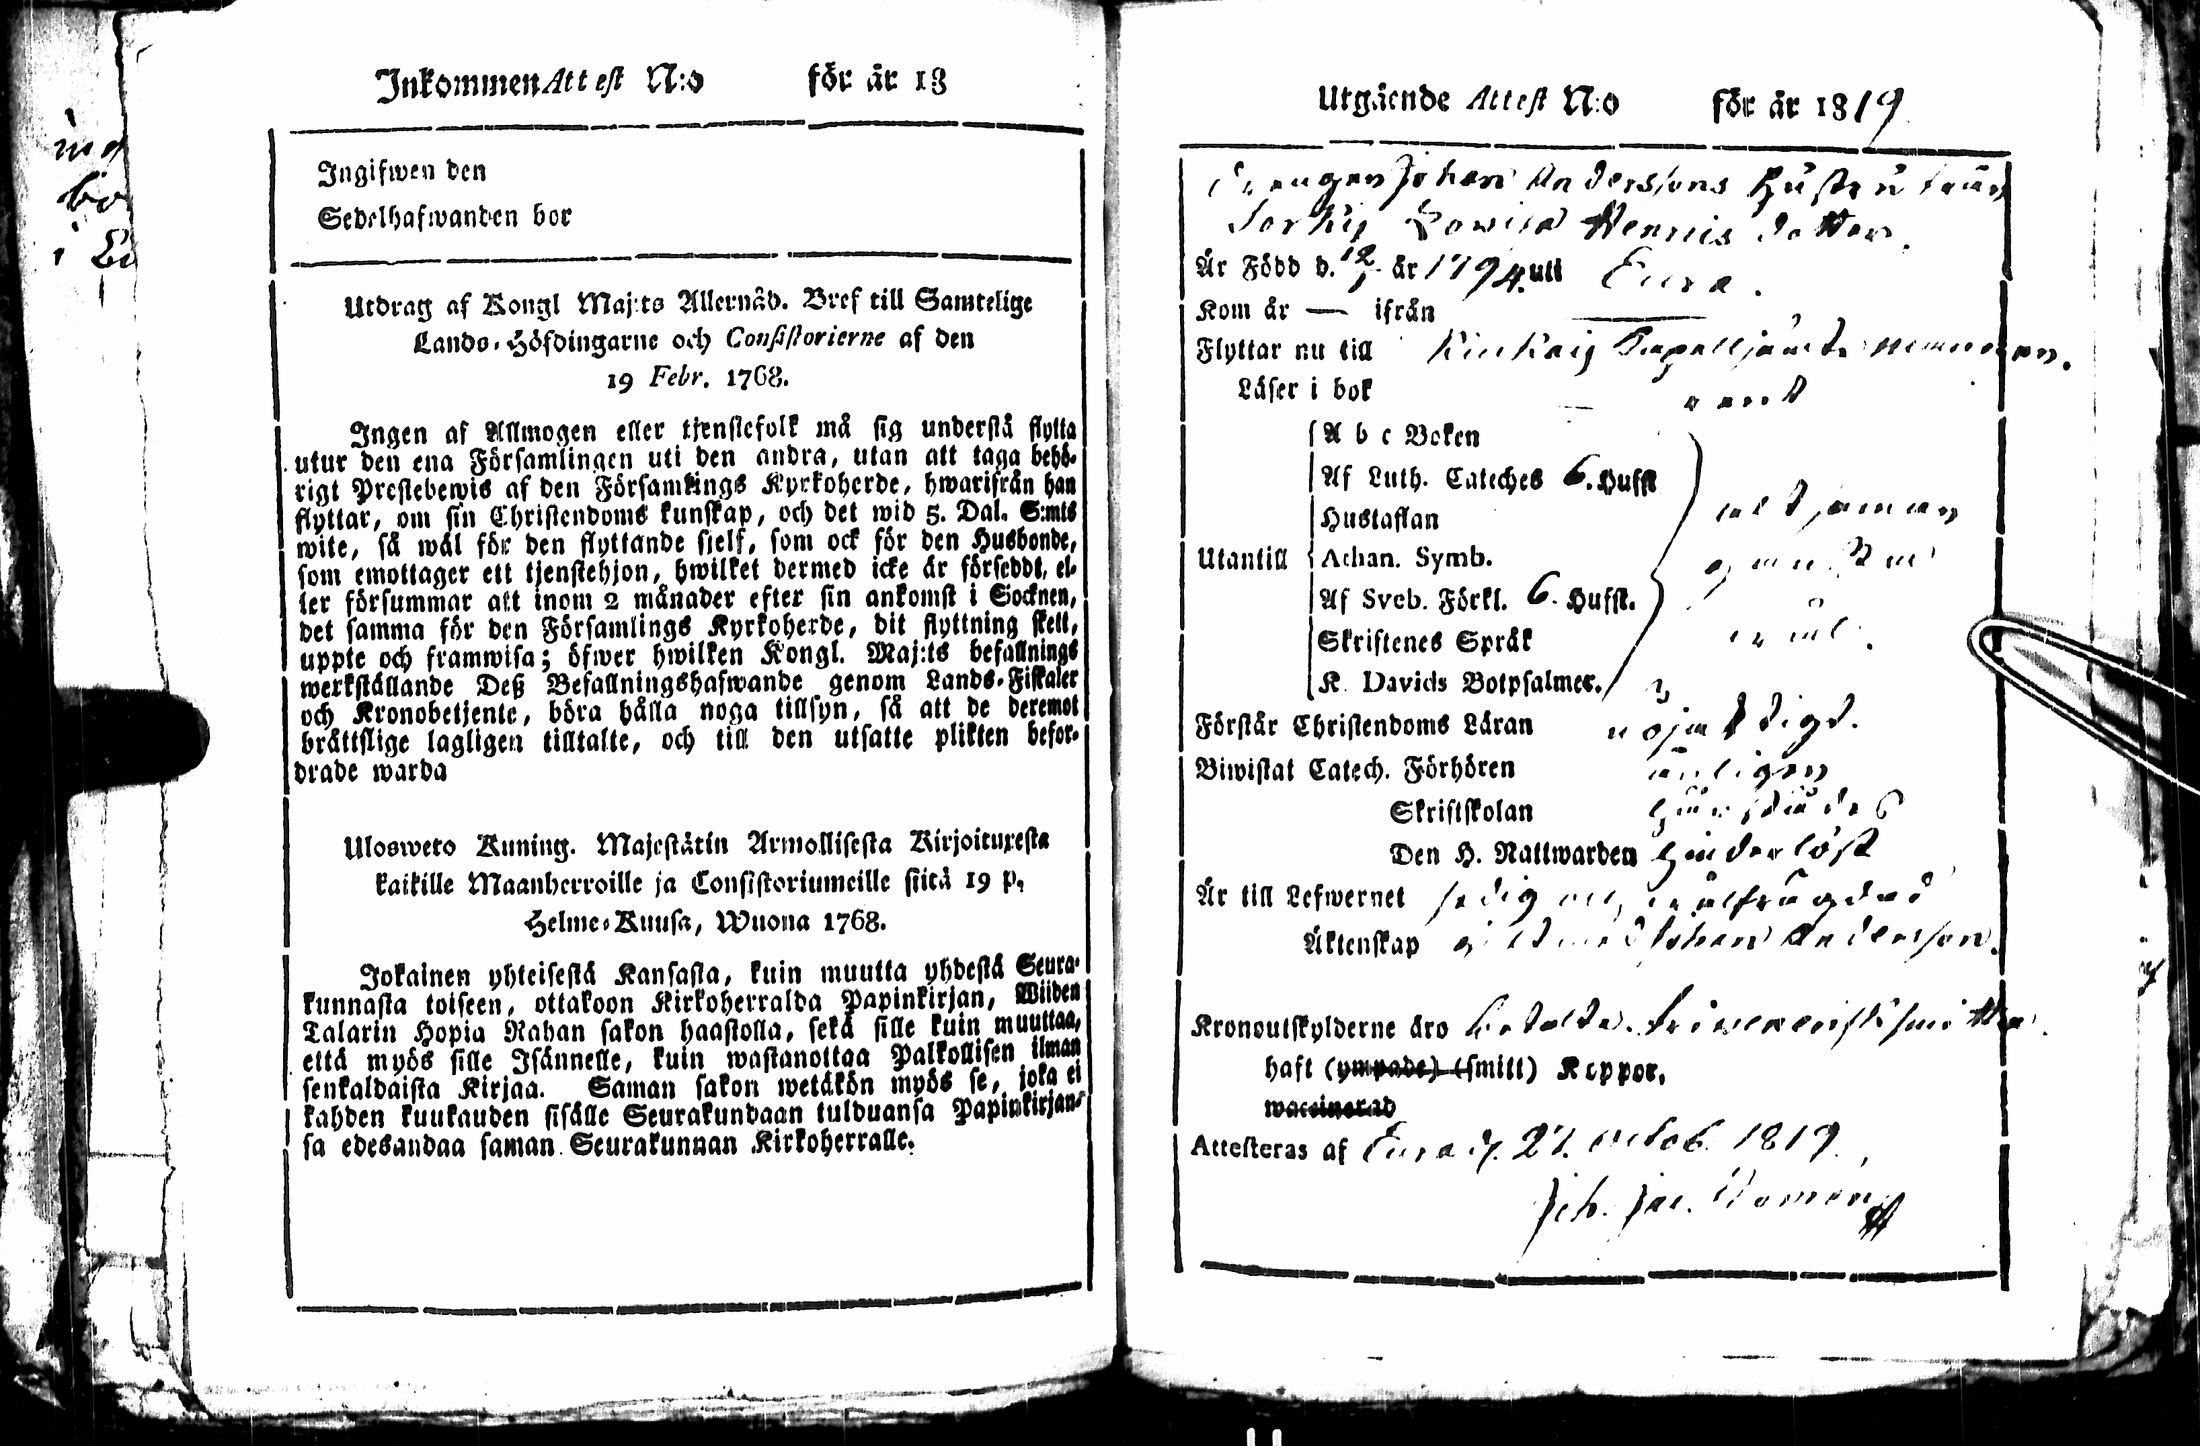 Inkommen Attest N:o för år 18
Ingifwen den
Sedelhafwanden bor
Utdrag af Kongl Maj:ts Allernåd. Bref till Samtelige
Lands-Höfdingarne och Consistorierne af den
19 Febr. 1768.
Ingen af Allmogen eller tjenstefolk må sig understå flytta
utur den ena Församlingen uti den andra, utan att taga behö-
rigt Prestebewis af den Församlings Kyrkoherde, hwarifrån han
flyttar, om sin Christendoms kunskap, och det wid 5. Dal. S:mts
wite, så wäl för den flyttande sjelf, som ock för den Husbonde,
som emottager ett tjenstehjon, hwilket dermed icke är försedt, el-
ler försummar att inom 2 månader efter sin ankomst i Socknen,
det samma för den Församlings Kyrkoherde, dit flyttning skett,
uppte och framwisa; öfwer hwilken Kongl. Maj:ts befallnings
werkställande Deß Befallningshafwande genom Lands-Fiskaler
och Kronobetjente, böra hålla noga tillsyn, så att de deremot
bråttslige lagligen tilltalte, och till den utsatte plikten befor-
drade warda
Ulosweto Kuning. Majestätin Armollisesta Kirjoituxesta
kaikille Maanherroille ja Consistoriumeille siitä 19 p.
Helme-Kuusa, Wuona 1768.
Jokainen yhteisestä Kansasta, kuin muutta yhdestä Seura-
kunnasta toiseen, ottakoon Kirkoherralda Papinkirjan, Wiiden
Talarin Hopia Rahan sakon haastolla, sekä sille kuin muuttaa,
että myös sille Isännelle, kuin wastanottaa Palkollisen ilman
senkaldaista Kirjaa. Saman sakon wetäkön myös se, joka ei
kahden kuukauden sisälle Seurakundaan tulduansa Papinkirjan-
sa edesandaa saman Seurakunnan Kirkoherralle.
Utgående Attest N:o för år 1819
Drängen Johan Anderssons Hustru
Lovisa Henricsdotter.
Är Född d. 12/1 år 1794 uti Eura.
Kom år — ifrån —
Flyttar nu till Kiukais Capell
Läser i bok rent
A b c Boken
Af Luth. Cateches 6. Hufst
Hustaflan
Utantill Athan. Symb.
Af Sveb. Förkl. 6. Hufst.
Skriftenes Språk
K. Davids Botpsalmer.
väl.
Förstår Christendoms Läran nöjaktigt.
Biwistat Catech. Förhören årligen
Skriftskolan
Den H. Nattwarden hinderlöst
Är till Lefwernet sedig och wälfrägdad
Äktenskap Johan Andersson.
Kronoutskylderne äro betalte.
haft (ympade) (smitt) Koppor.
waccinerad
Attesteras af Eura d. 27. octob. 1819.
Joh. Jac.